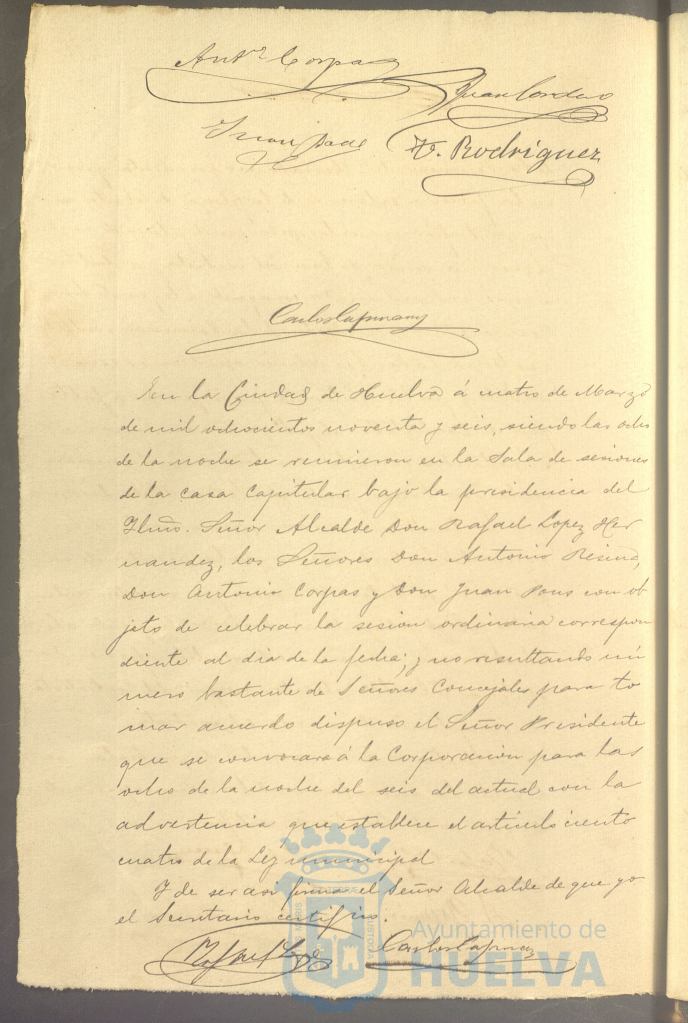 Antº Corpas
Juan Cordero
Juan
V. Rodriguez
Carlos Capmany
En la Ciudad de Huelva á cuatro de Marzo
de mil ochocientos noventa y seis, siendo las ocho
de la noche se reunieron en la Sala de sesiones
de la casa Capitular bajo la presidencia del
Ylmo. Señor Alcalde Don Rafael Lopez Her
nandez, los Señores Don Antonio Resina,
Don Antonio Corpas y Don Juan Pons con ob
jeto de celebrar la sesion ordinaria correspon
diente al dia de la fecha; y no resultando nú
mero bastante de Señores Concejales para to
mar acuerdo dispuso el Señor Presidente
que se convocara á la Corporacion para las
ocho de la noche del seis del actual con la
advertencia que establece el articulo ciento
cuatro de la Ley municipal
Y de ser asi firma el Señor Alcalde de que yo
el Secretario certifico.
Rafael Lopez
Carlos Capmany
Ayuntamiento de
HUELVA